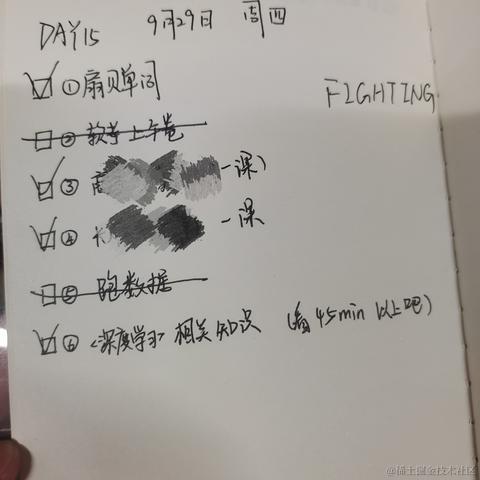 DAY15 9月29日 周四
☑ ① 扇贝单词
FIGHTING
☐ ② 软考上午卷
☑ ③ 一课)
☑ ④ 一课
☐ ⑤ 跑数据
☑ ⑥ 《深度学习》相关知识 (看45min以上吧)
@稀土掘金技术社区